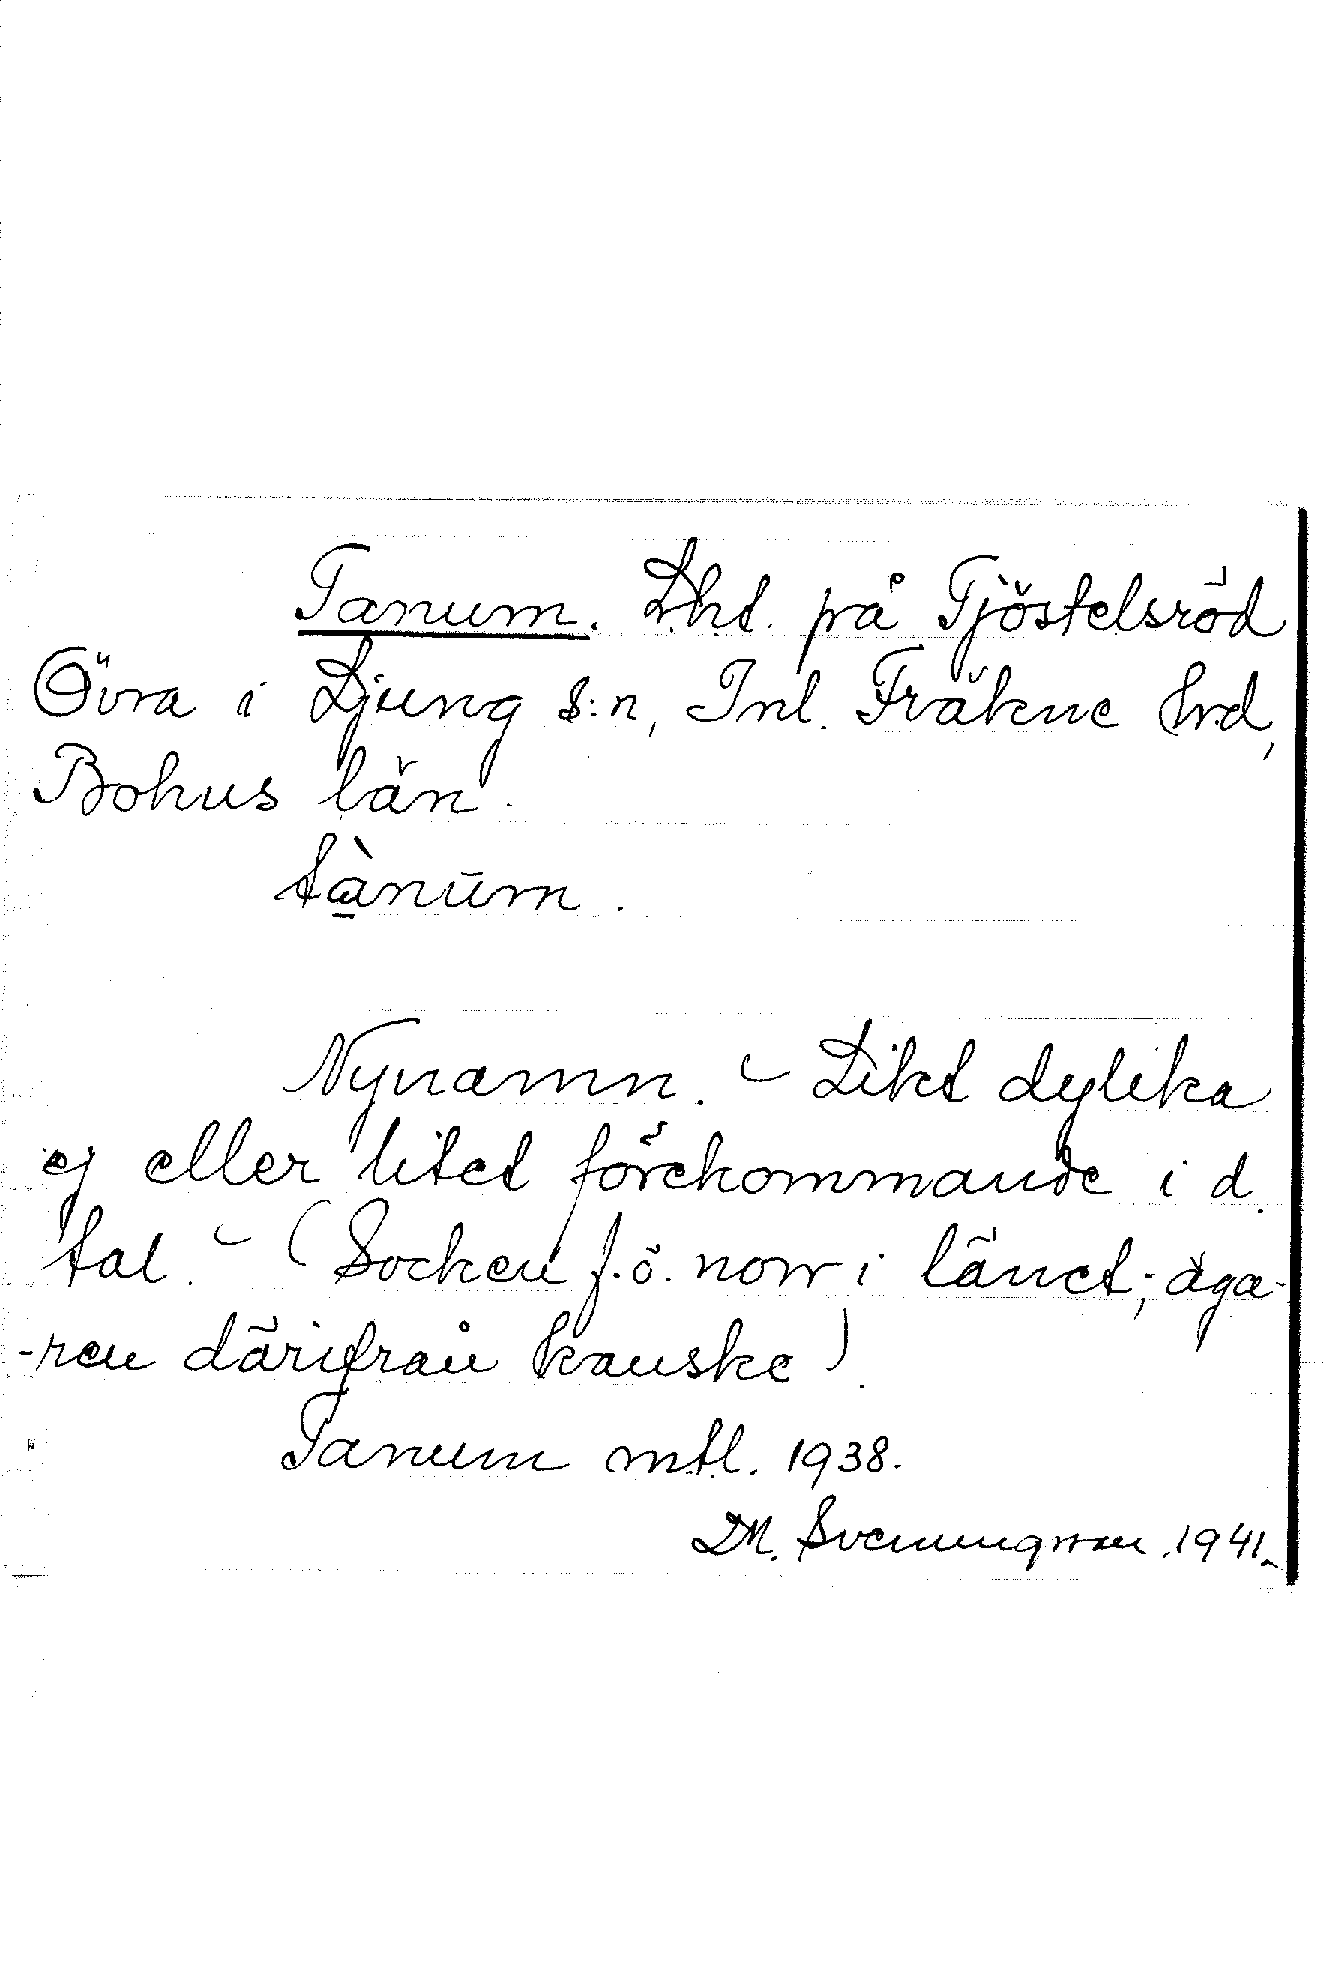 Tanum. Lht. på Tjöstelsröd
Övra i Ljung s:n, Inl. Fräkne hrd,
Bohus län.
tànūm.
Nynamn. - Likt dylika
ej eller litet förekommande i d.
tal. - (Socken f.ö. norr i länet; äga-
-ren därifrån kanske).
Tanum mtl. 1938.
D.M. Svenningsson. 1941.